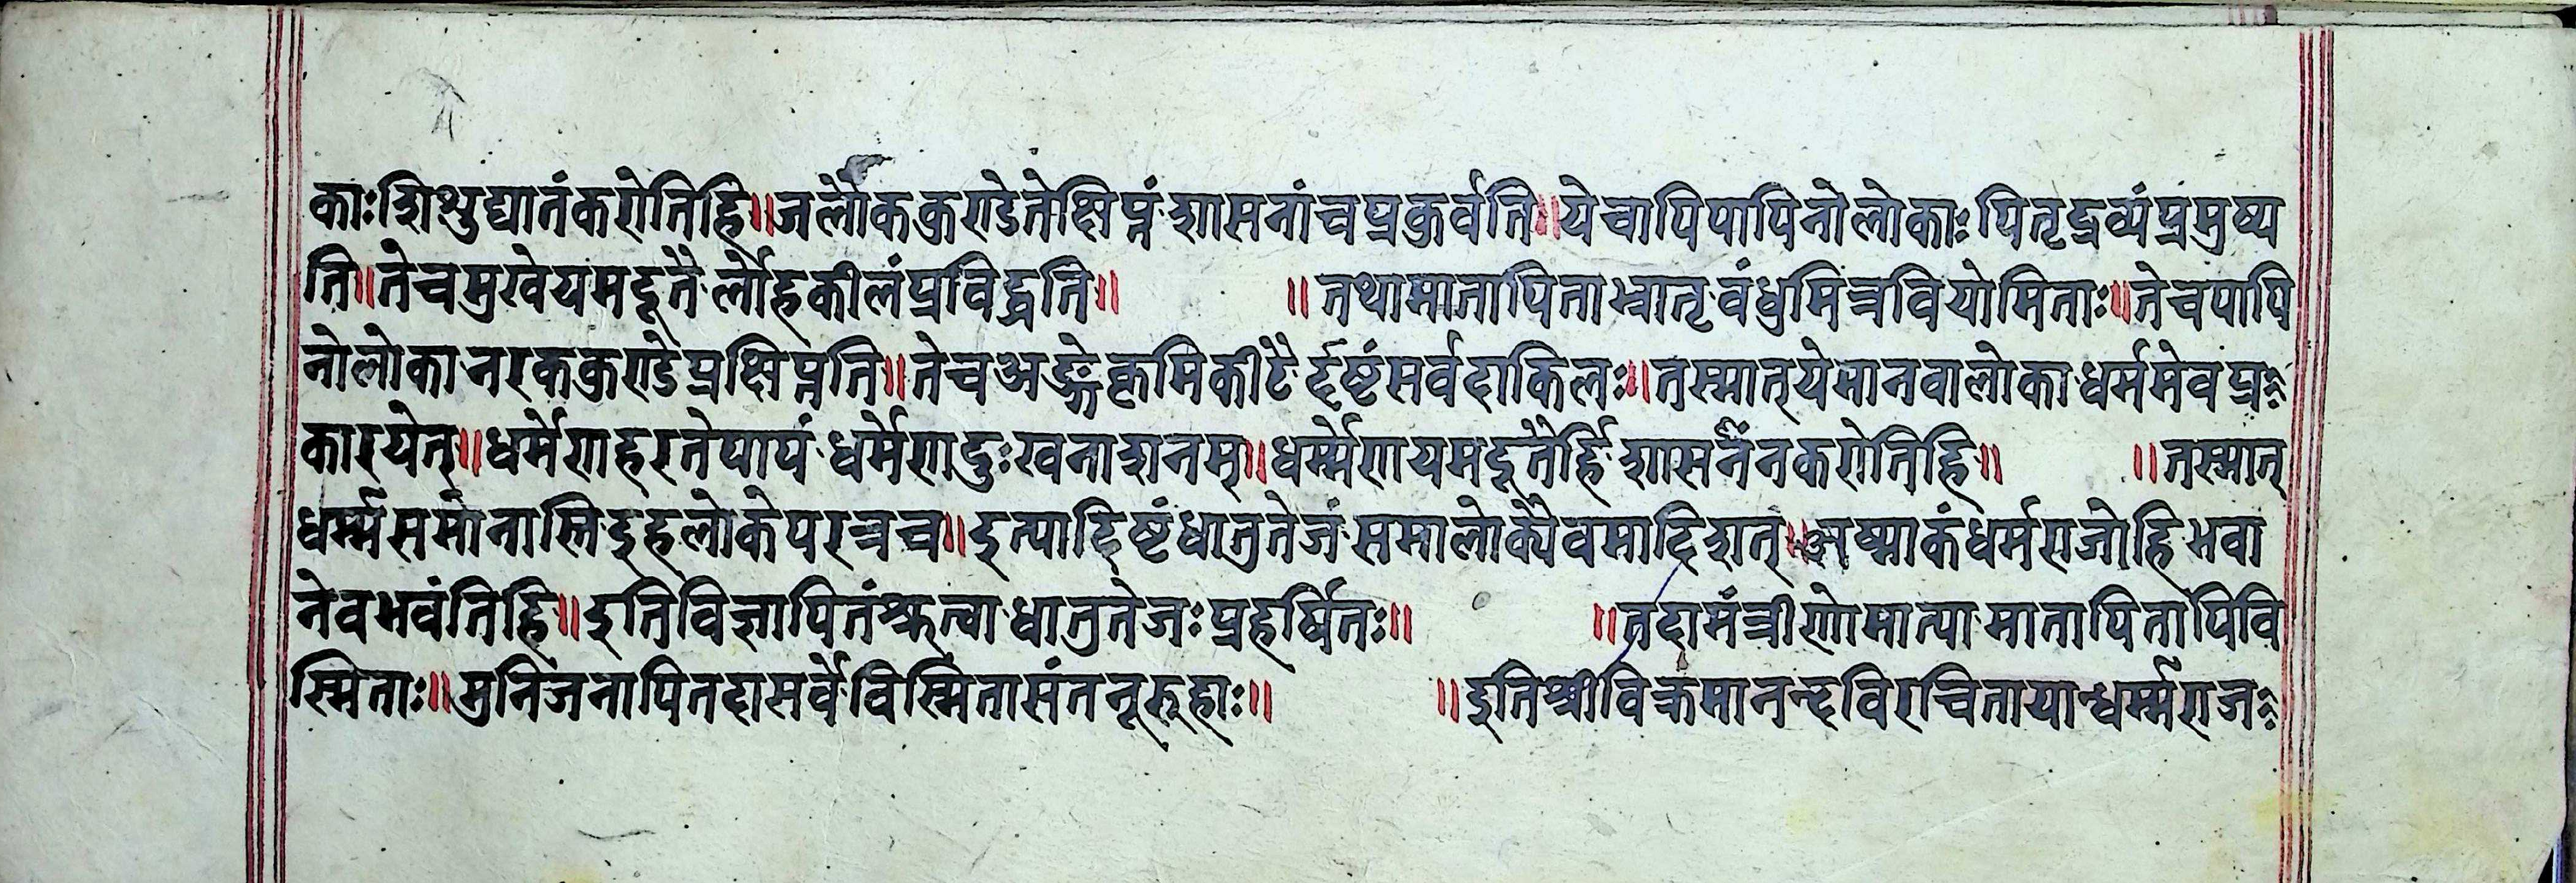 काःशिशुद्यातंकरोतिहि॥जलौककुण्डेतेक्षिप्नंशासनांचप्रकुर्वति॥येचापिपापिनोलोकाःपितृद्रव्यंप्रमुष्य
ति॥तेचमुखेयमदूतैर्लोहकीलंप्रविद्धति॥ ॥तथामातापिताभ्रातृवंधुमित्रवियोमिताः॥तेचपापि
नोलोकानरककुण्डेप्रक्षिप्नति॥तेचअङ्गेकृमिकीटैर्दृष्टंसर्वदाकिलः॥तस्मात्येमानवालोकाधर्ममेवप्र
कारयेत्॥धर्मेणहरतेपापंधर्मेणदुःखनाशनम्॥धर्म्मेणयमदूतैर्हिशासनंनकरोतिहि॥ ॥तस्मात्
धर्म्मसमोनास्तिइहलोकेपरत्रच॥इत्यादिष्टंधातुतेजंसमालोक्यैवमादिशत्॥अष्माकंधर्मराजोहिभवा
नेवभवंतिहि॥इतिविज्ञापितंश्रुत्वाधातुतेजःप्रहर्षितः॥ ॥तदामंत्रीणोमात्यामातापितापिवि
स्मिताः॥मुनिजनापितदासर्वेविस्मितासंतनूरूहाः॥ ॥इतिश्रीविक्रमानन्दविरचितायान्धर्म्मराज